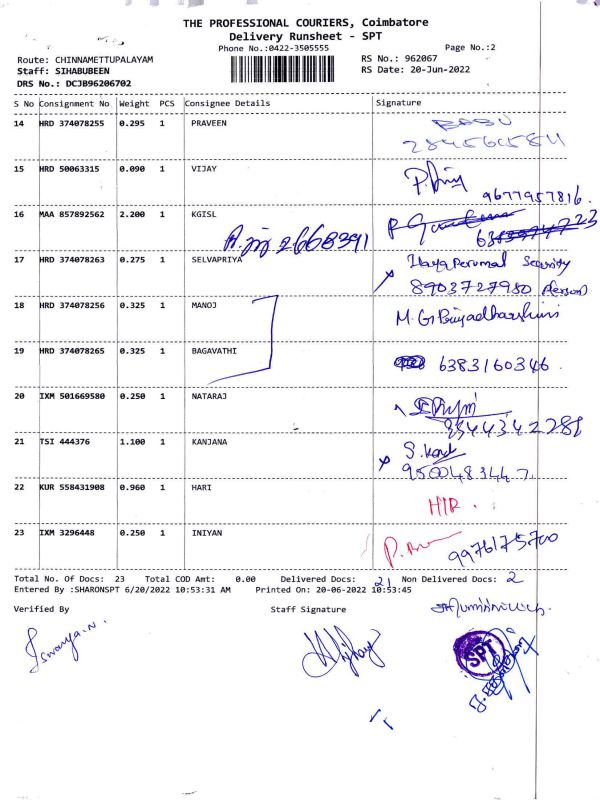 THE PROFESSIONAL COURIERS, Coimbatore
Delivery Runsheet - SPT
Phone No.:0422-3505555
Page No.:2
Route: CHINNAMETTUPALAYAM
RS No.: 962067
Staff: SIHABUBEEN
RS Date: 20-Jun-2022
DRS No.: DCJB96206702
S No Consignment No Weight PCS Consignee Details Signature
14 HRD 374078255 0.295 1 PRAVEEN BABU
15 HRD 50063315 0.090 1 VIJAY
9677957816.
16 MAA 857892562 2.200 1 KGISL
2668391
17 HRD 374078263 0.275 1 SELVAPRIYA Ilaya Perumal Security
8903727980 (Person)
18 HRD 374078256 0.325 1 MANOJ M. G. Priyadharshini
19 HRD 374078265 0.325 1 BAGAVATHI 6383160346.
20 IXM 501669580 0.250 1 NATARAJ
9344342281
21 TSI 444376 1.100 1 KANJANA
9500483447.
22 KUR 558431908 0.960 1 HARI
HIR.
23 IXM 3296448 0.250 1 INIYAN
9976175700
Total No. Of Docs: 23 Total COD Amt: 0.00 Delivered Docs: 21 Non Delivered Docs: 2
Entered By :SHARONSPT 6/20/2022 10:53:31 AM Printed On: 20-06-2022 10:53:45
Verified By Staff Signature
SPT